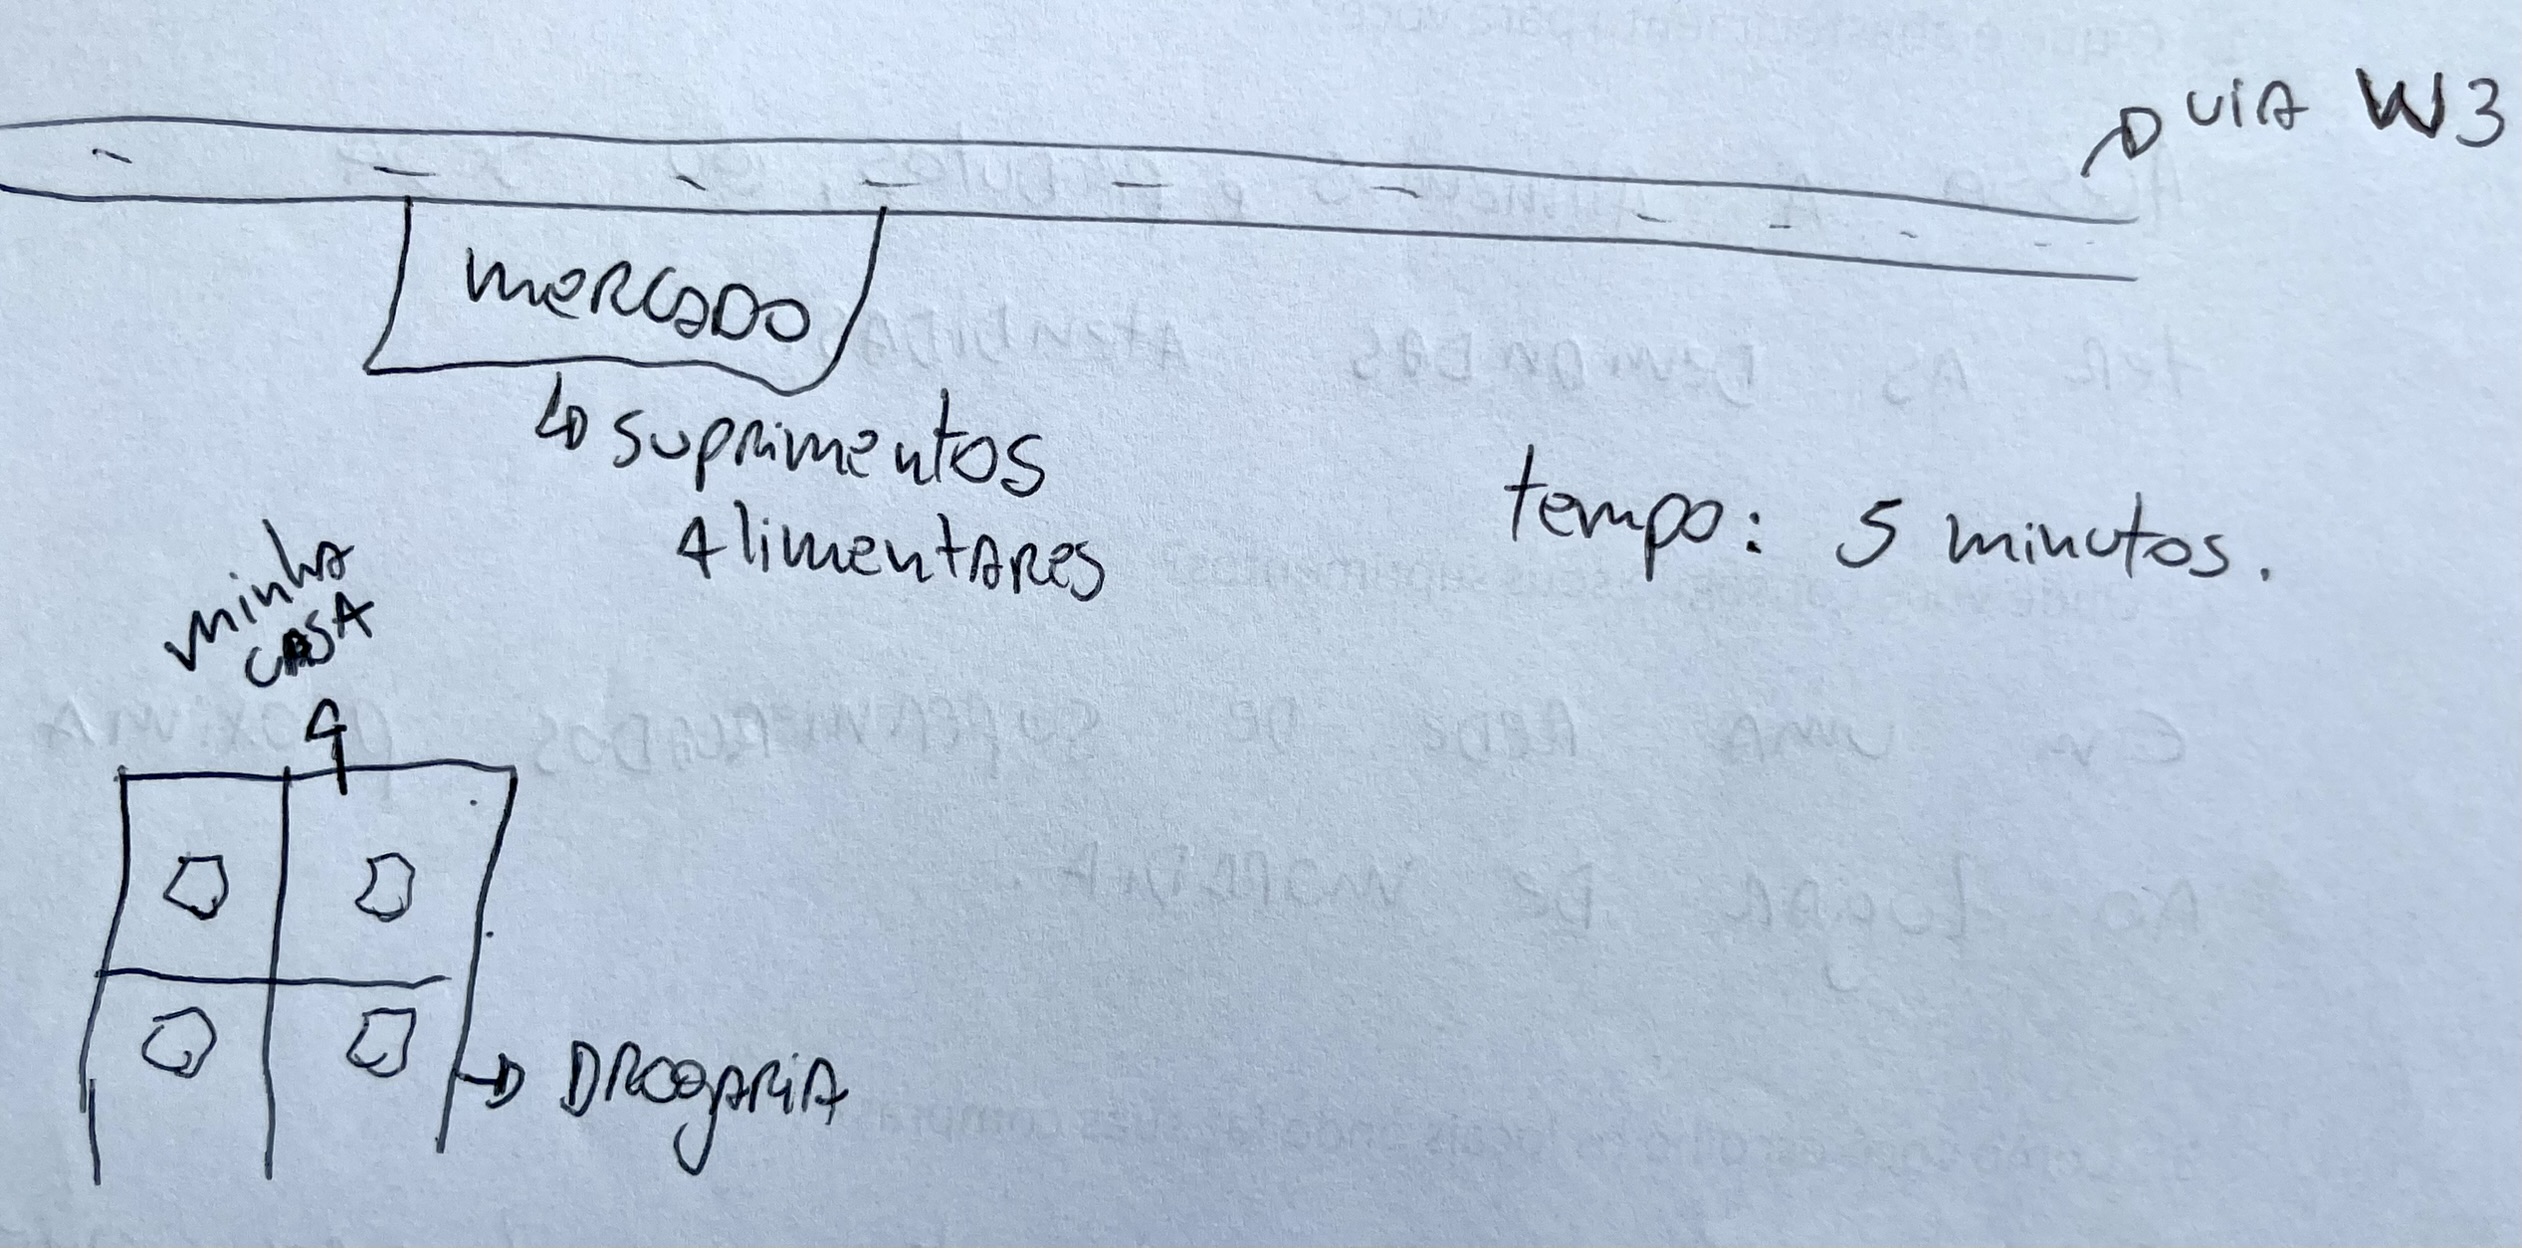 VIA W3
mercado
suprimentos
Alimentares
tempo: 5 minutos.
minha
casa
Drogaria